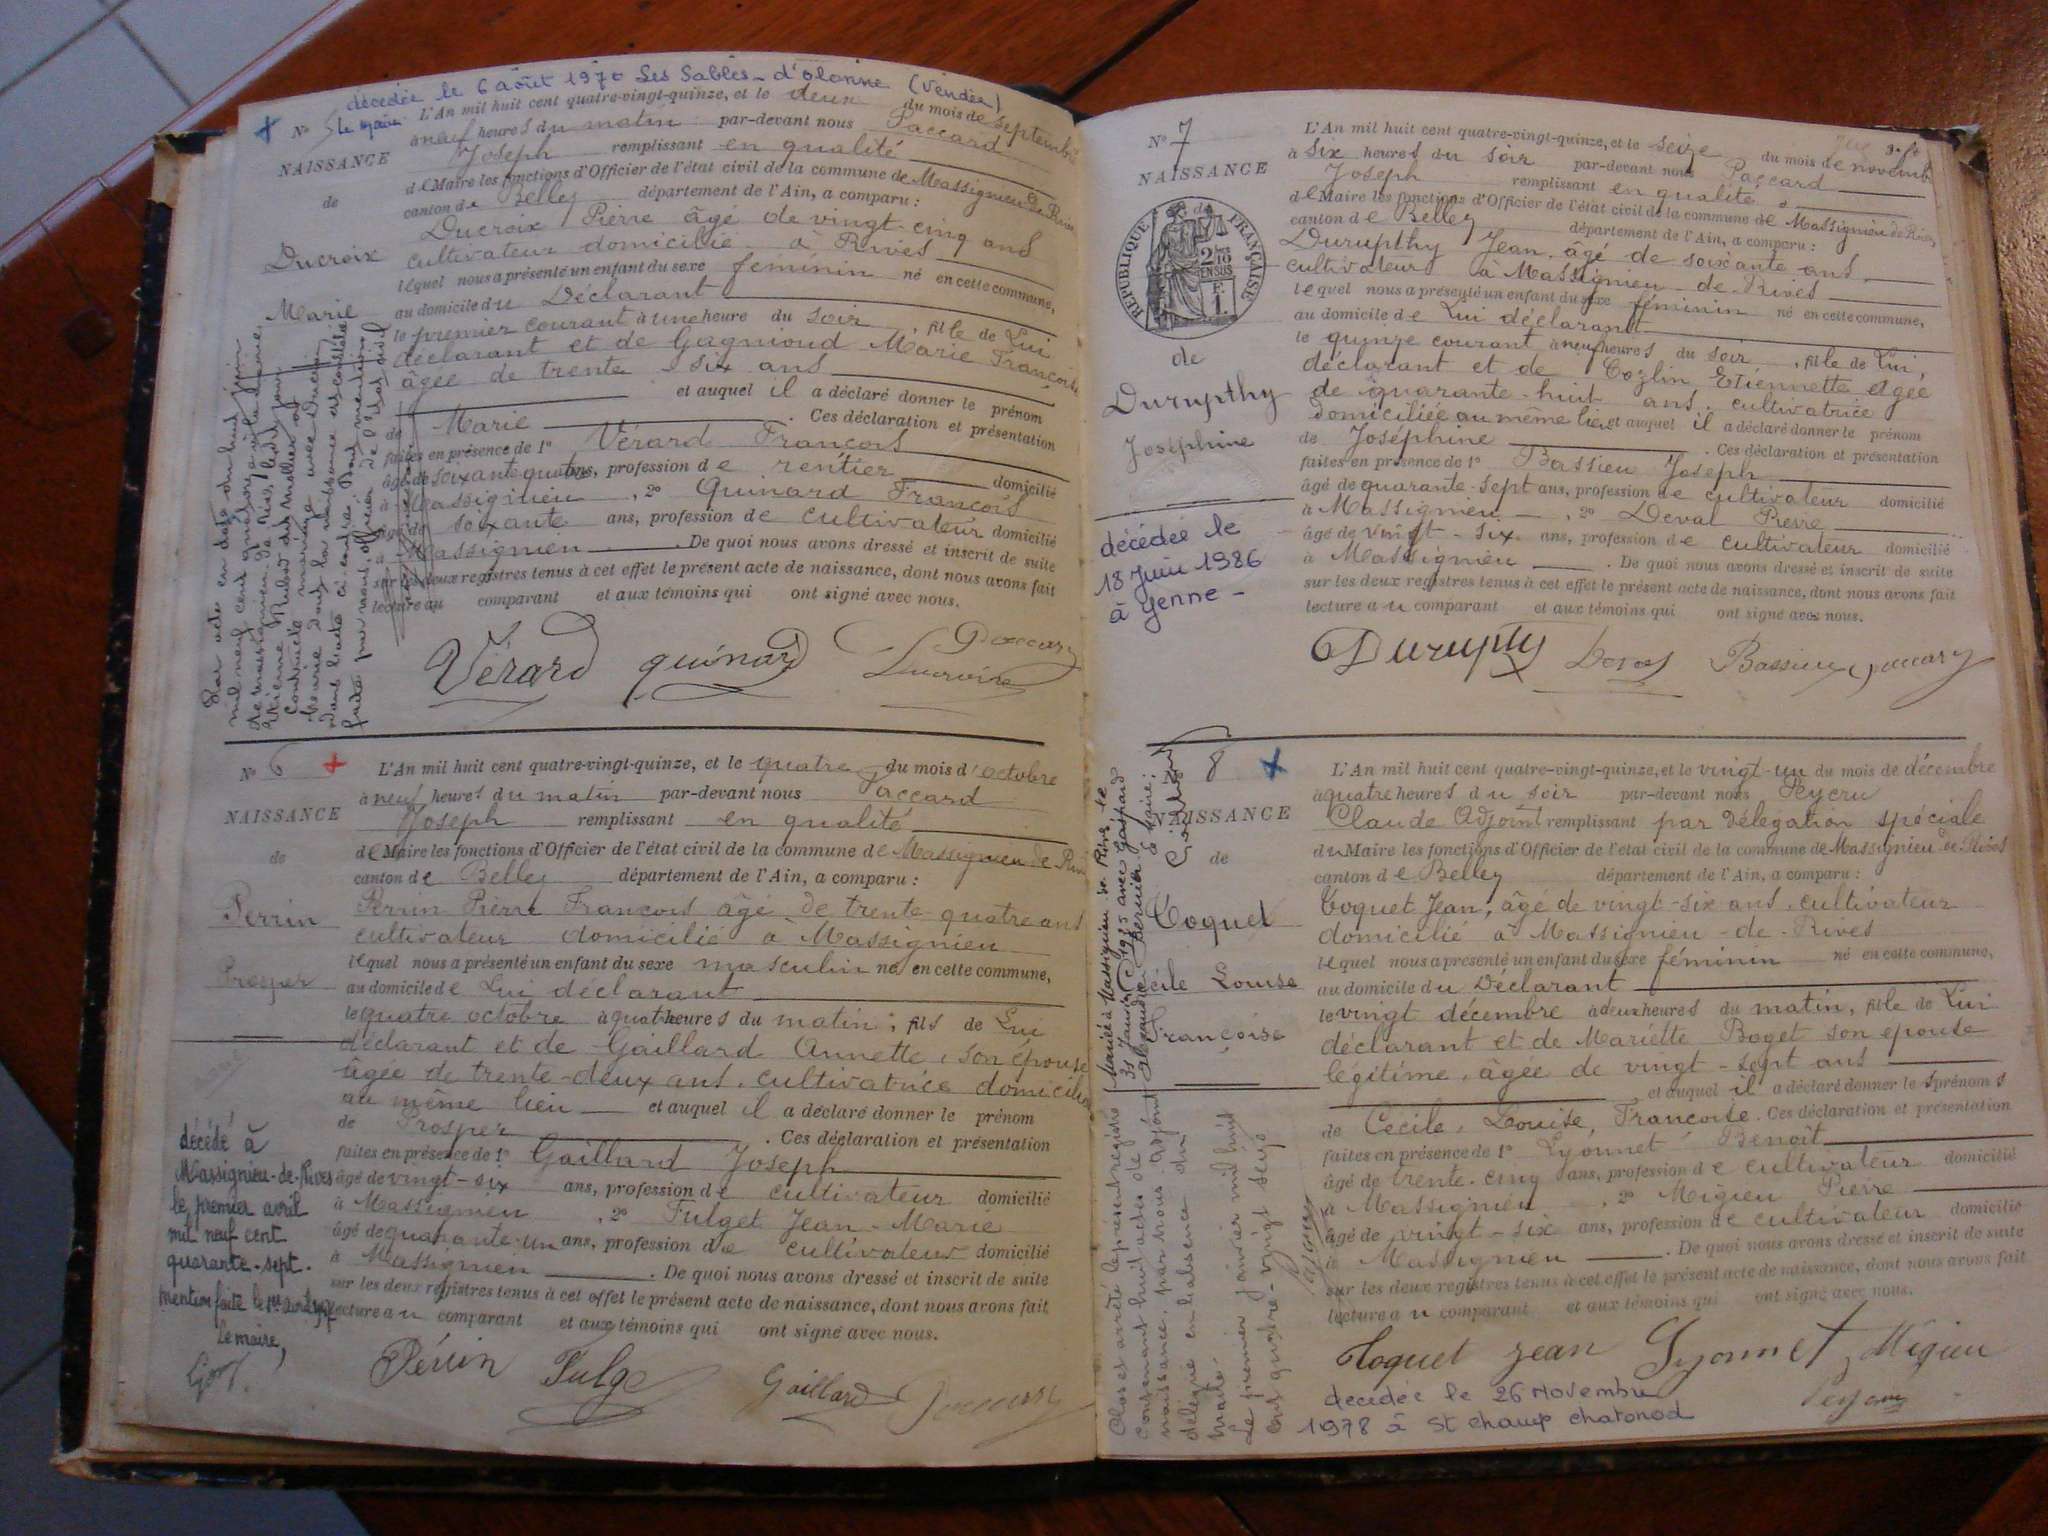 décédée le 6 août 1970 Les Sables-d'olonne (Vendée)
N°
NAISSANCE
de
Ducroix
Marie
L'An mil huit cent quatre-vingt-quinze, et le deux du mois de septembre
à neuf heures du matin par-devant nous Paccard
Joseph remplissant en qualité
de Maire les fonctions d'Officier de l'état civil de la commune de Massignieu de Rives
canton de Belley département de l'Ain, a comparu :
Ducroix Pierre âgé de vingt-cinq ans
cultivateur domicilié à Rives
lequel nous a présenté un enfant du sexe féminin né en cette commune,
au domicile du Déclarant
le premier courant à une heure du soir, fille de Lui
déclarant et de Gagnioud Marie Françoise
âgée de trente six ans
et auquel il a déclaré donner le prénom
de Marie. Ces déclaration et présentation
faites en présence de 1° Vérard François
âgé de soixante quatre ans, profession de rentier domicilié
à Massignieu, 2° Quinard François
âgé de soixante ans, profession de cultivateur domicilié
à Massignieu. De quoi nous avons dressé et inscrit de suite
sur les deux registres tenus à cet effet le présent acte de naissance, dont nous avons fait
lecture au comparant et aux témoins qui ont signé avec nous.
Vérard quinard Ducroix Paccard
Par acte en date du huit juin
mil neuf cent
N° 6
NAISSANCE
de
Perrin
Prosper
L'An mil huit cent quatre-vingt-quinze, et le quatre du mois d'octobre
à neuf heures du matin par-devant nous Paccard
Joseph remplissant en qualité
de Maire les fonctions d'Officier de l'état civil de la commune de Massignieu de Rives
canton de Belley département de l'Ain, a comparu :
Perrin Pierre François âgé de trente-quatre ans
cultivateur domicilié à Massignieu
lequel nous a présenté un enfant du sexe masculin né en cette commune,
au domicile de Lui déclarant
le quatre octobre à quatre heures du matin ; fils de Lui
déclarant et de Gaillard Annette, son épouse
âgée de trente-deux ans, cultivatrice domiciliée
au même lieu et auquel il a déclaré donner le prénom
de Prosper. Ces déclaration et présentation
faites en présence de 1° Gaillard Joseph
âgé de vingt-six ans, profession de cultivateur domicilié
à Massignieu, 2° Fulget Jean-Marie
âgé de quarante-un ans, profession de cultivateur domicilié
à Massignieu. De quoi nous avons dressé et inscrit de suite
sur les deux registres tenus à cet effet le présent acte de naissance, dont nous avons fait
lecture au comparant et aux témoins qui ont signé avec nous.
décédé à
Massignieu-de-Rives
le premier avril
mil neuf cent
quarante-sept.
mention faite le 1er avril 1947
Le maire,
Perrin Fulget Gaillard Paccard
N° 7
NAISSANCE
RÉPUBLIQUE FRANÇAISE
2 10
EN SUS
F.
1.
de
Durupthy
Joséphine
décédée le
18 Juin 1986
à Yenne -
L'An mil huit cent quatre-vingt-quinze, et le seize du mois de novembre
à six heures du soir par-devant nous Paccard
Joseph remplissant en qualité
de Maire les fonctions d'Officier de l'état civil de la commune de Massignieu de Rives
canton de Belley département de l'Ain, a comparu :
Durupthy Jean, âgé de soixante ans
cultivateur à Massignieu-de-Rives
lequel nous a présenté un enfant du sexe féminin né en cette commune,
au domicile de Lui déclarant
le quinze courant à neuf heures du soir, fille de Lui,
déclarant et de Cozlin Etiennette agée
de quarante-huit ans, cultivatrice
domiciliée au même lieu et auquel il a déclaré donner le prénom
de Joséphine. Ces déclaration et présentation
faites en présence de 1° Bassieu Joseph
âgé de quarante-sept ans, profession de cultivateur domicilié
à Massignieu, 2° Deval Pierre
âgé de vingt-six ans, profession de cultivateur domicilié
à Massignieu. De quoi nous avons dressé et inscrit de suite
sur les deux registres tenus à cet effet le présent acte de naissance, dont nous avons fait
lecture au comparant et aux témoins qui ont signé avec nous.
Durupty Bassieu Paccard
8
NAISSANCE
de
Coquet
Cécile Louise
Françoise
L'An mil huit cent quatre-vingt-quinze, et le vingt-un du mois de décembre
à quatre heures du soir par-devant nous Peycru
Claude Adjoint remplissant par délégation spéciale
du Maire les fonctions d'Officier de l'état civil de la commune de Massignieu de Rives
canton de Belley département de l'Ain, a comparu :
Coquet Jean, âgé de vingt-six ans, cultivateur
domicilié à Massignieu-de-Rives
lequel nous a présenté un enfant du sexe féminin né en cette commune,
au domicile du Déclarant
le vingt décembre à deux heures du matin, fille de Lui
déclarant et de Mariette Boget son épouse
légitime, âgée de vingt-sept ans
et auquel il a déclaré donner les prénoms
de Cécile, Louise, Françoise. Ces déclaration et présentation
faites en présence de 1° Lyonnet Benoît
âgé de trente-cinq ans, profession de cultivateur domicilié
à Massignieu, 2° Migieu Pierre
âgé de vingt-six ans, profession de cultivateur domicilié
à Massignieu. De quoi nous avons dressé et inscrit de suite
sur les deux registres tenus à cet effet le présent acte de naissance, dont nous avons fait
lecture au comparant et aux témoins qui ont signé avec nous.
Coquet Jean Lyonnet Migieu
Peycru
décédée le 26 Novembre
1978 à St Champ Chatonod
Mariée à Massignieu de Rives le
Clos et arrêté le présent registre
contenant huit actes de
naissance, par nous adjoint
délégué en l'absence du
Maire.
Le premier janvier mil huit
cent quatre-vingt seize